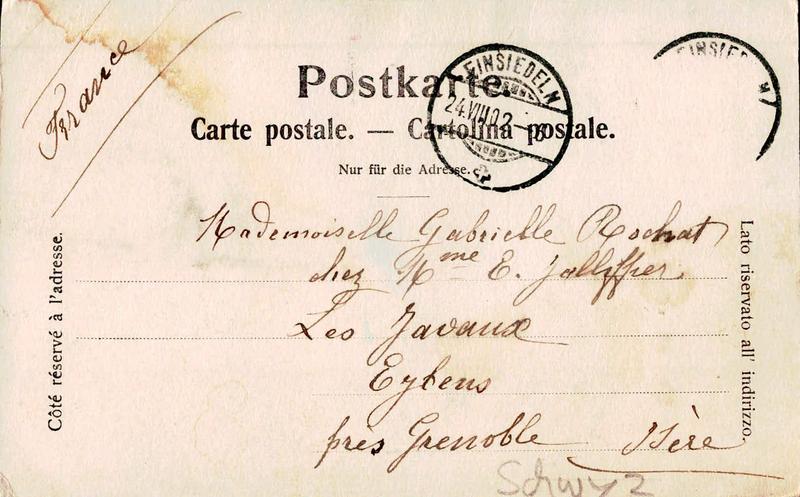 France
Postkarte.
EINSIEDELN
24.VIII.02
EINSIEDELN
Carte postale. — Cartolina postale.
Nur für die Adresse.
Mademoiselle Gabrielle Rochat
chez Mme E.
Les Javaux
Eybens
près Grenoble Isère
Côté réservé à l'adresse.
Lato riservato all' indirizzo.
Schwyz